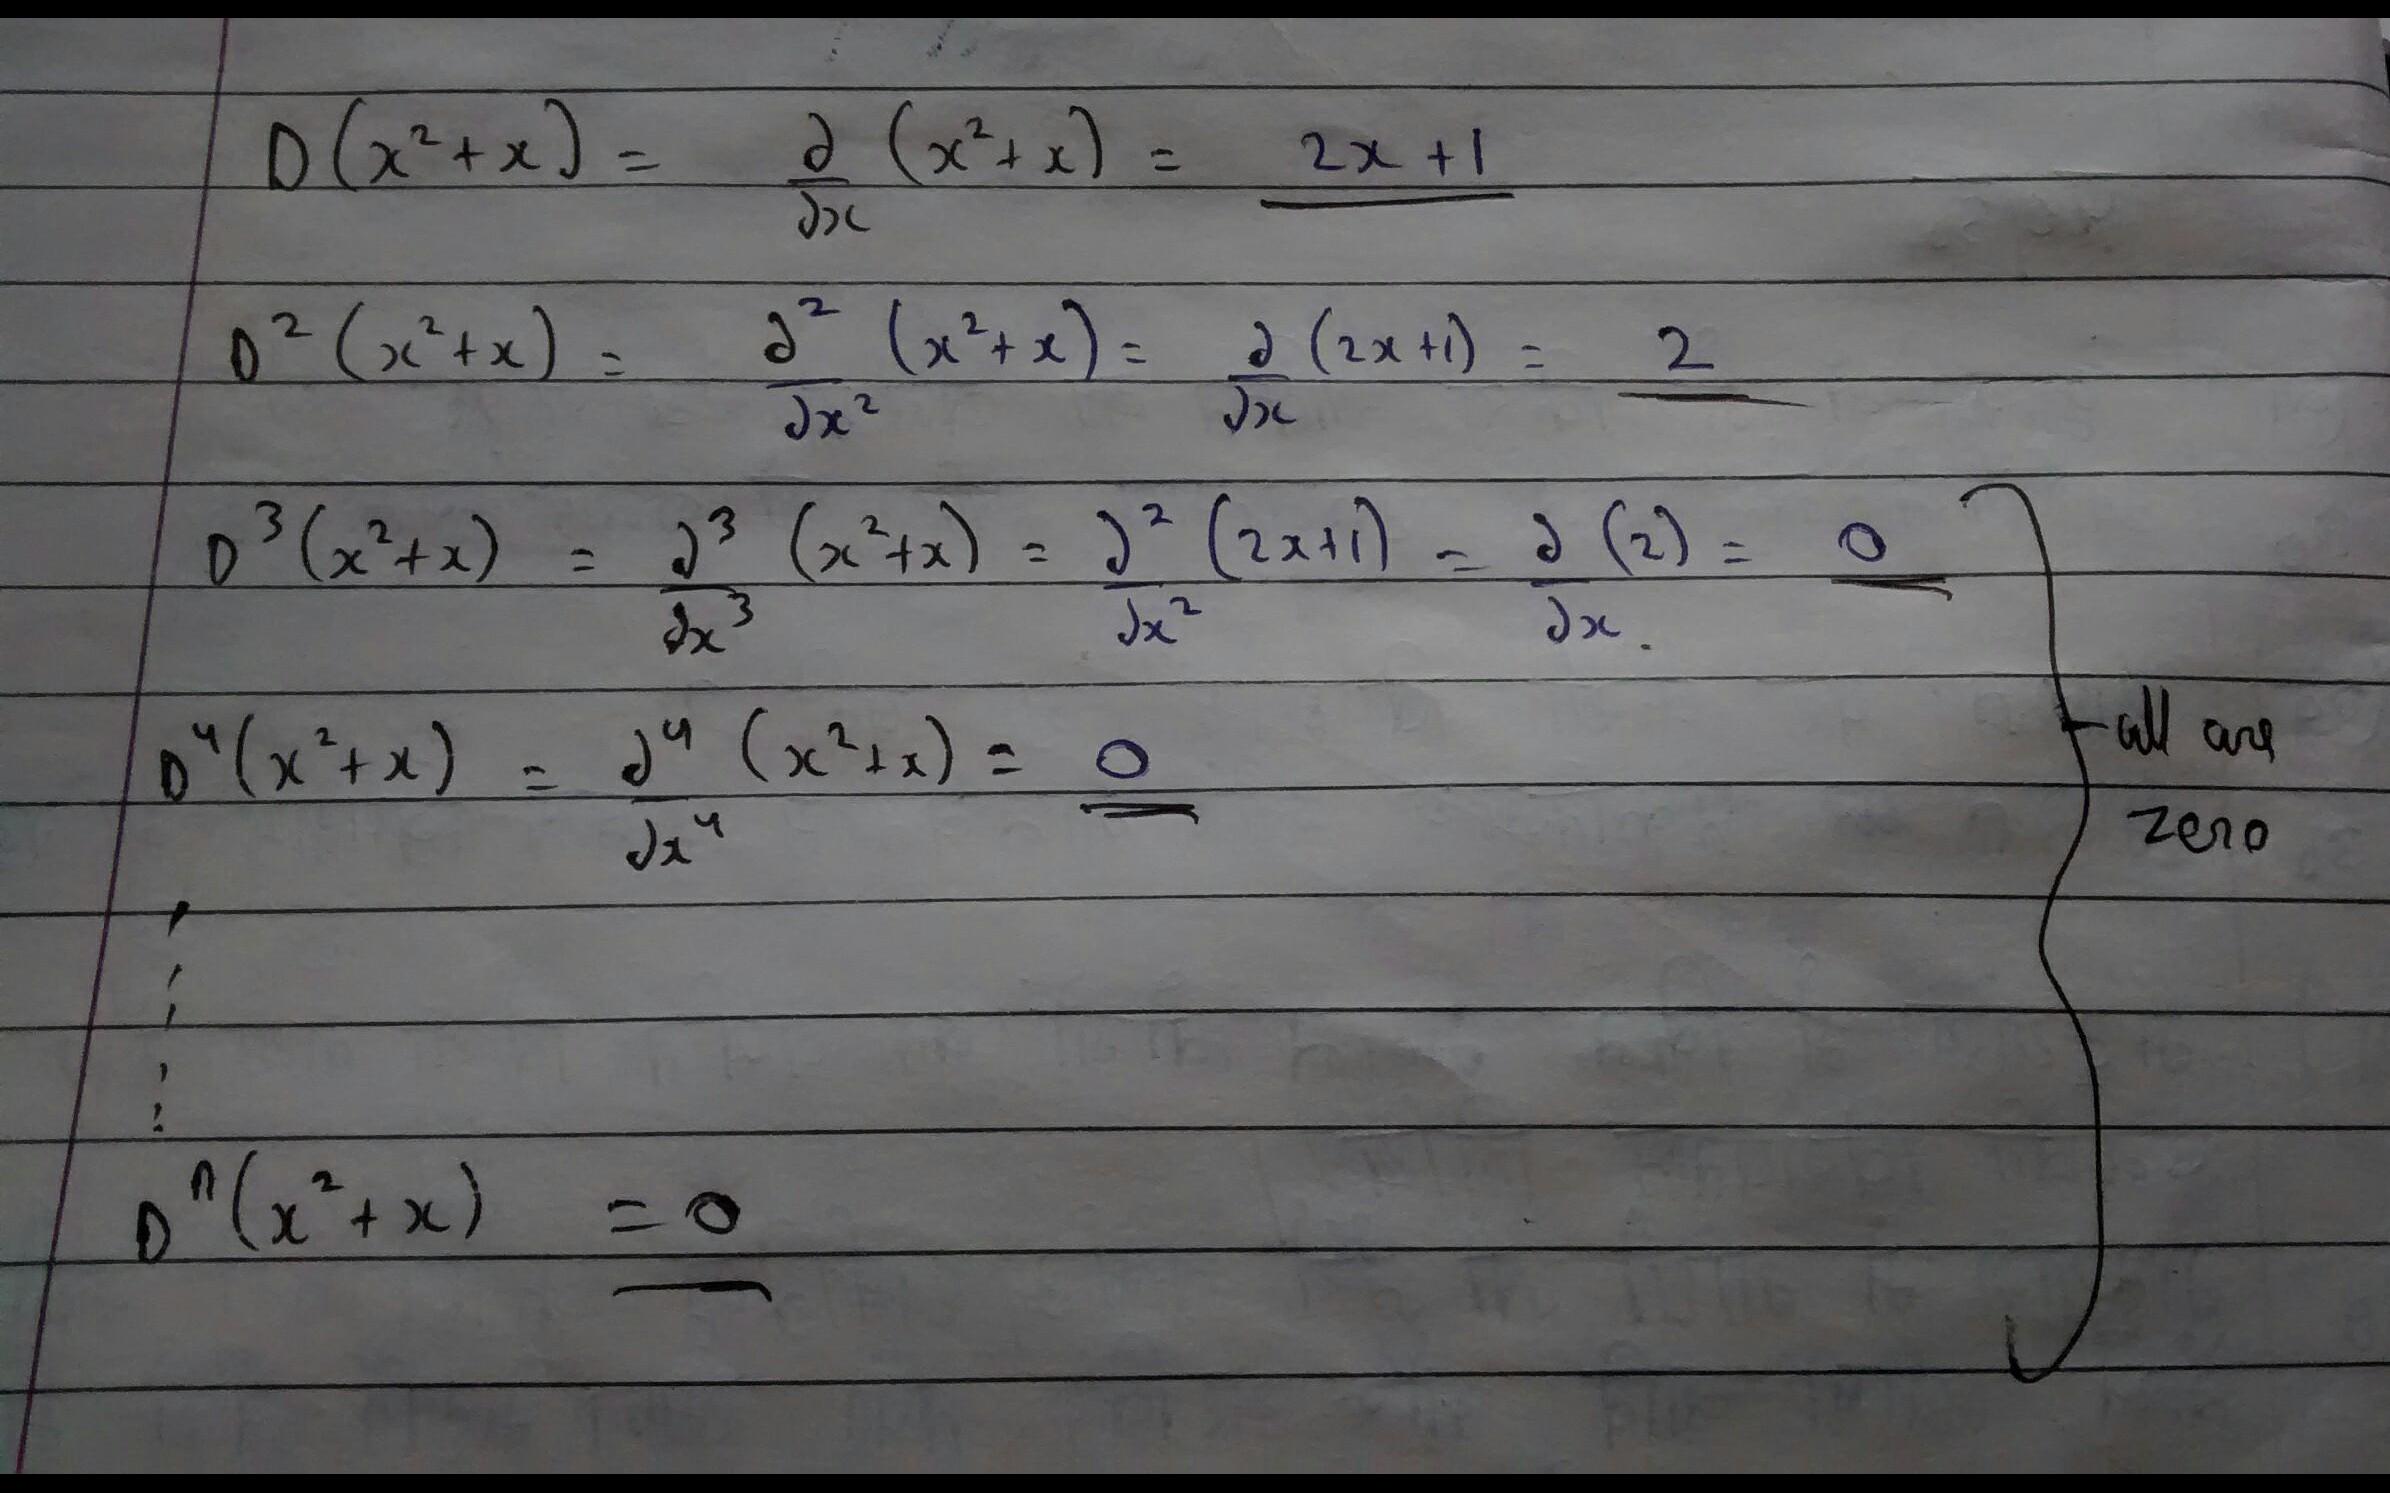 D(x²+x) = ∂/∂x (x²+x) = 2x+1
D²(x²+x) = ∂²/∂x² (x²+x) = ∂/∂x (2x+1) = 2
D³(x²+x) = ∂³/∂x³ (x²+x) = ∂²/∂x² (2x+1) = ∂/∂x (2) = 0
D⁴(x²+x) = ∂⁴/∂x⁴ (x²+x) = 0
all are
zero
Dⁿ(x²+x) = 0